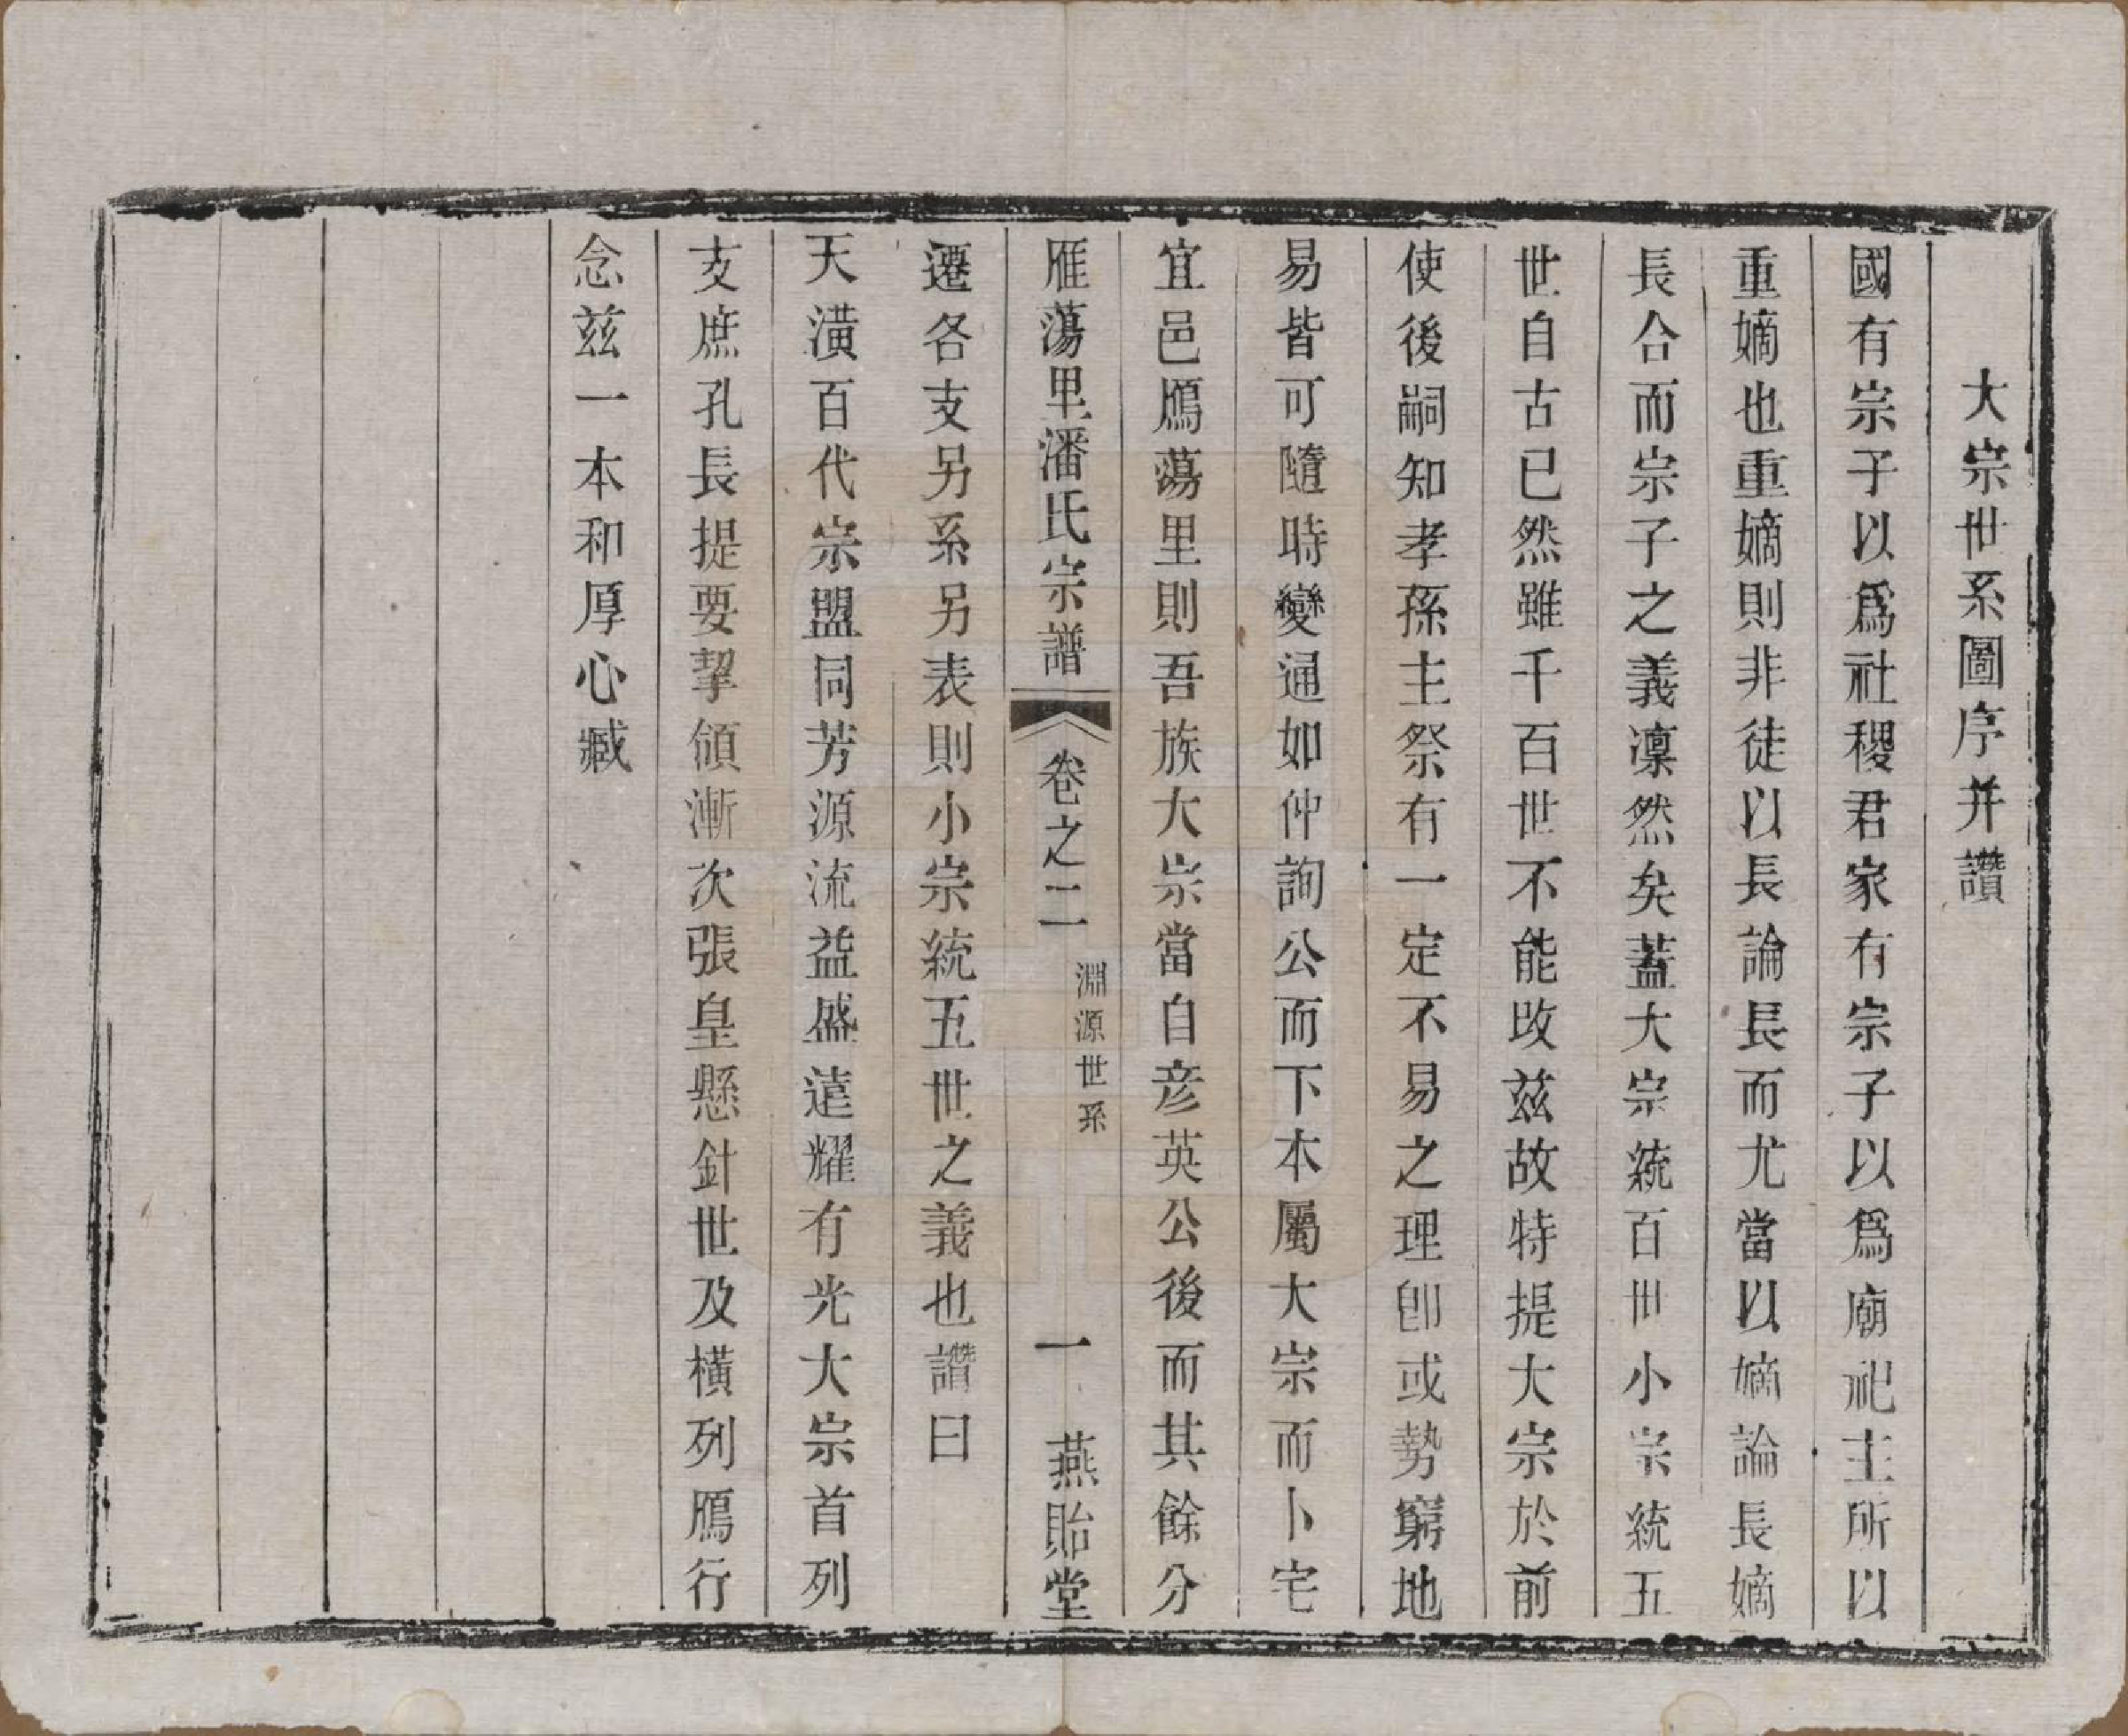 大宗世系圖序并讚
國有宗子以爲社稷君家有宗子以爲廟祀主所以
重嫡也重嫡則非徒以長論長而尤當以嫡論長嫡
長合而宗子之義凜然矣蓋大宗統百世小宗統五
世自古已然雖千百世不能改茲故特提大宗於前
使後嗣知孝孫主祭有一定不易之理卽或勢窮地
易皆可隨時變通如仲詢公而下本屬大宗而卜宅
宜邑鴈蕩里則吾族大宗當自彦英公後而其餘分
雁蕩里潘氏宗譜 卷之二 淵源世系 一 燕貽堂
遷各支另系另表則小宗統五世之義也讚曰
天潢百代宗盟同芳源流益盛遠耀有光大宗首列
支庶孔長提要挈領漸次張皇懸針世及橫列鴈行
念茲一本和厚心臧